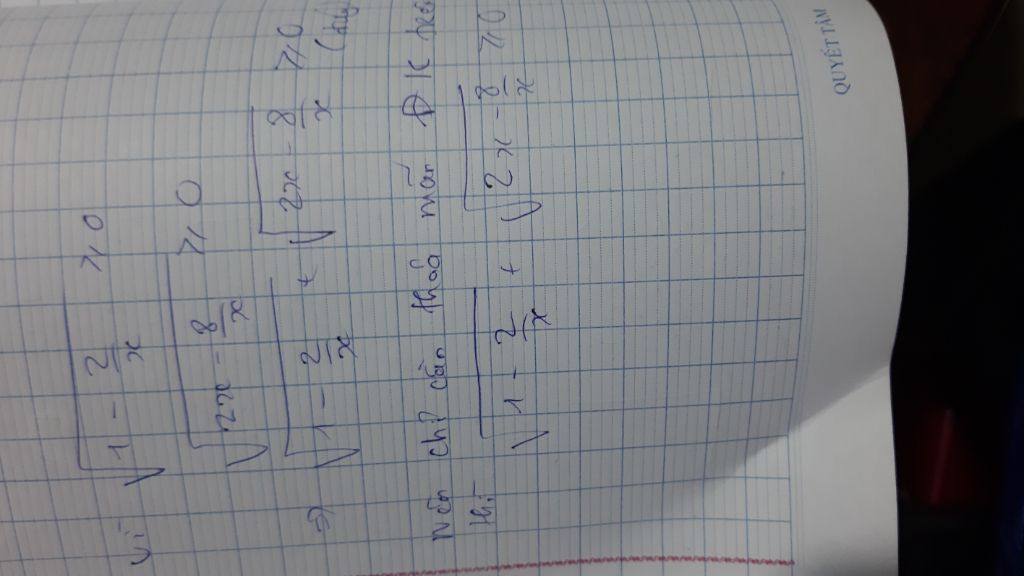 Vì √(1 - 2/x) ⩾ 0
√(2x - 8/x) ⩾ 0
⇒ √(1 - 2/x) + √(2x - 8/x) ⩾ 0
Nên chỉ cần thoả mãn ĐK
thì √(1 - 2/x) + √(2x - 8/x) ⩾ 0
QUYẾT TÂM